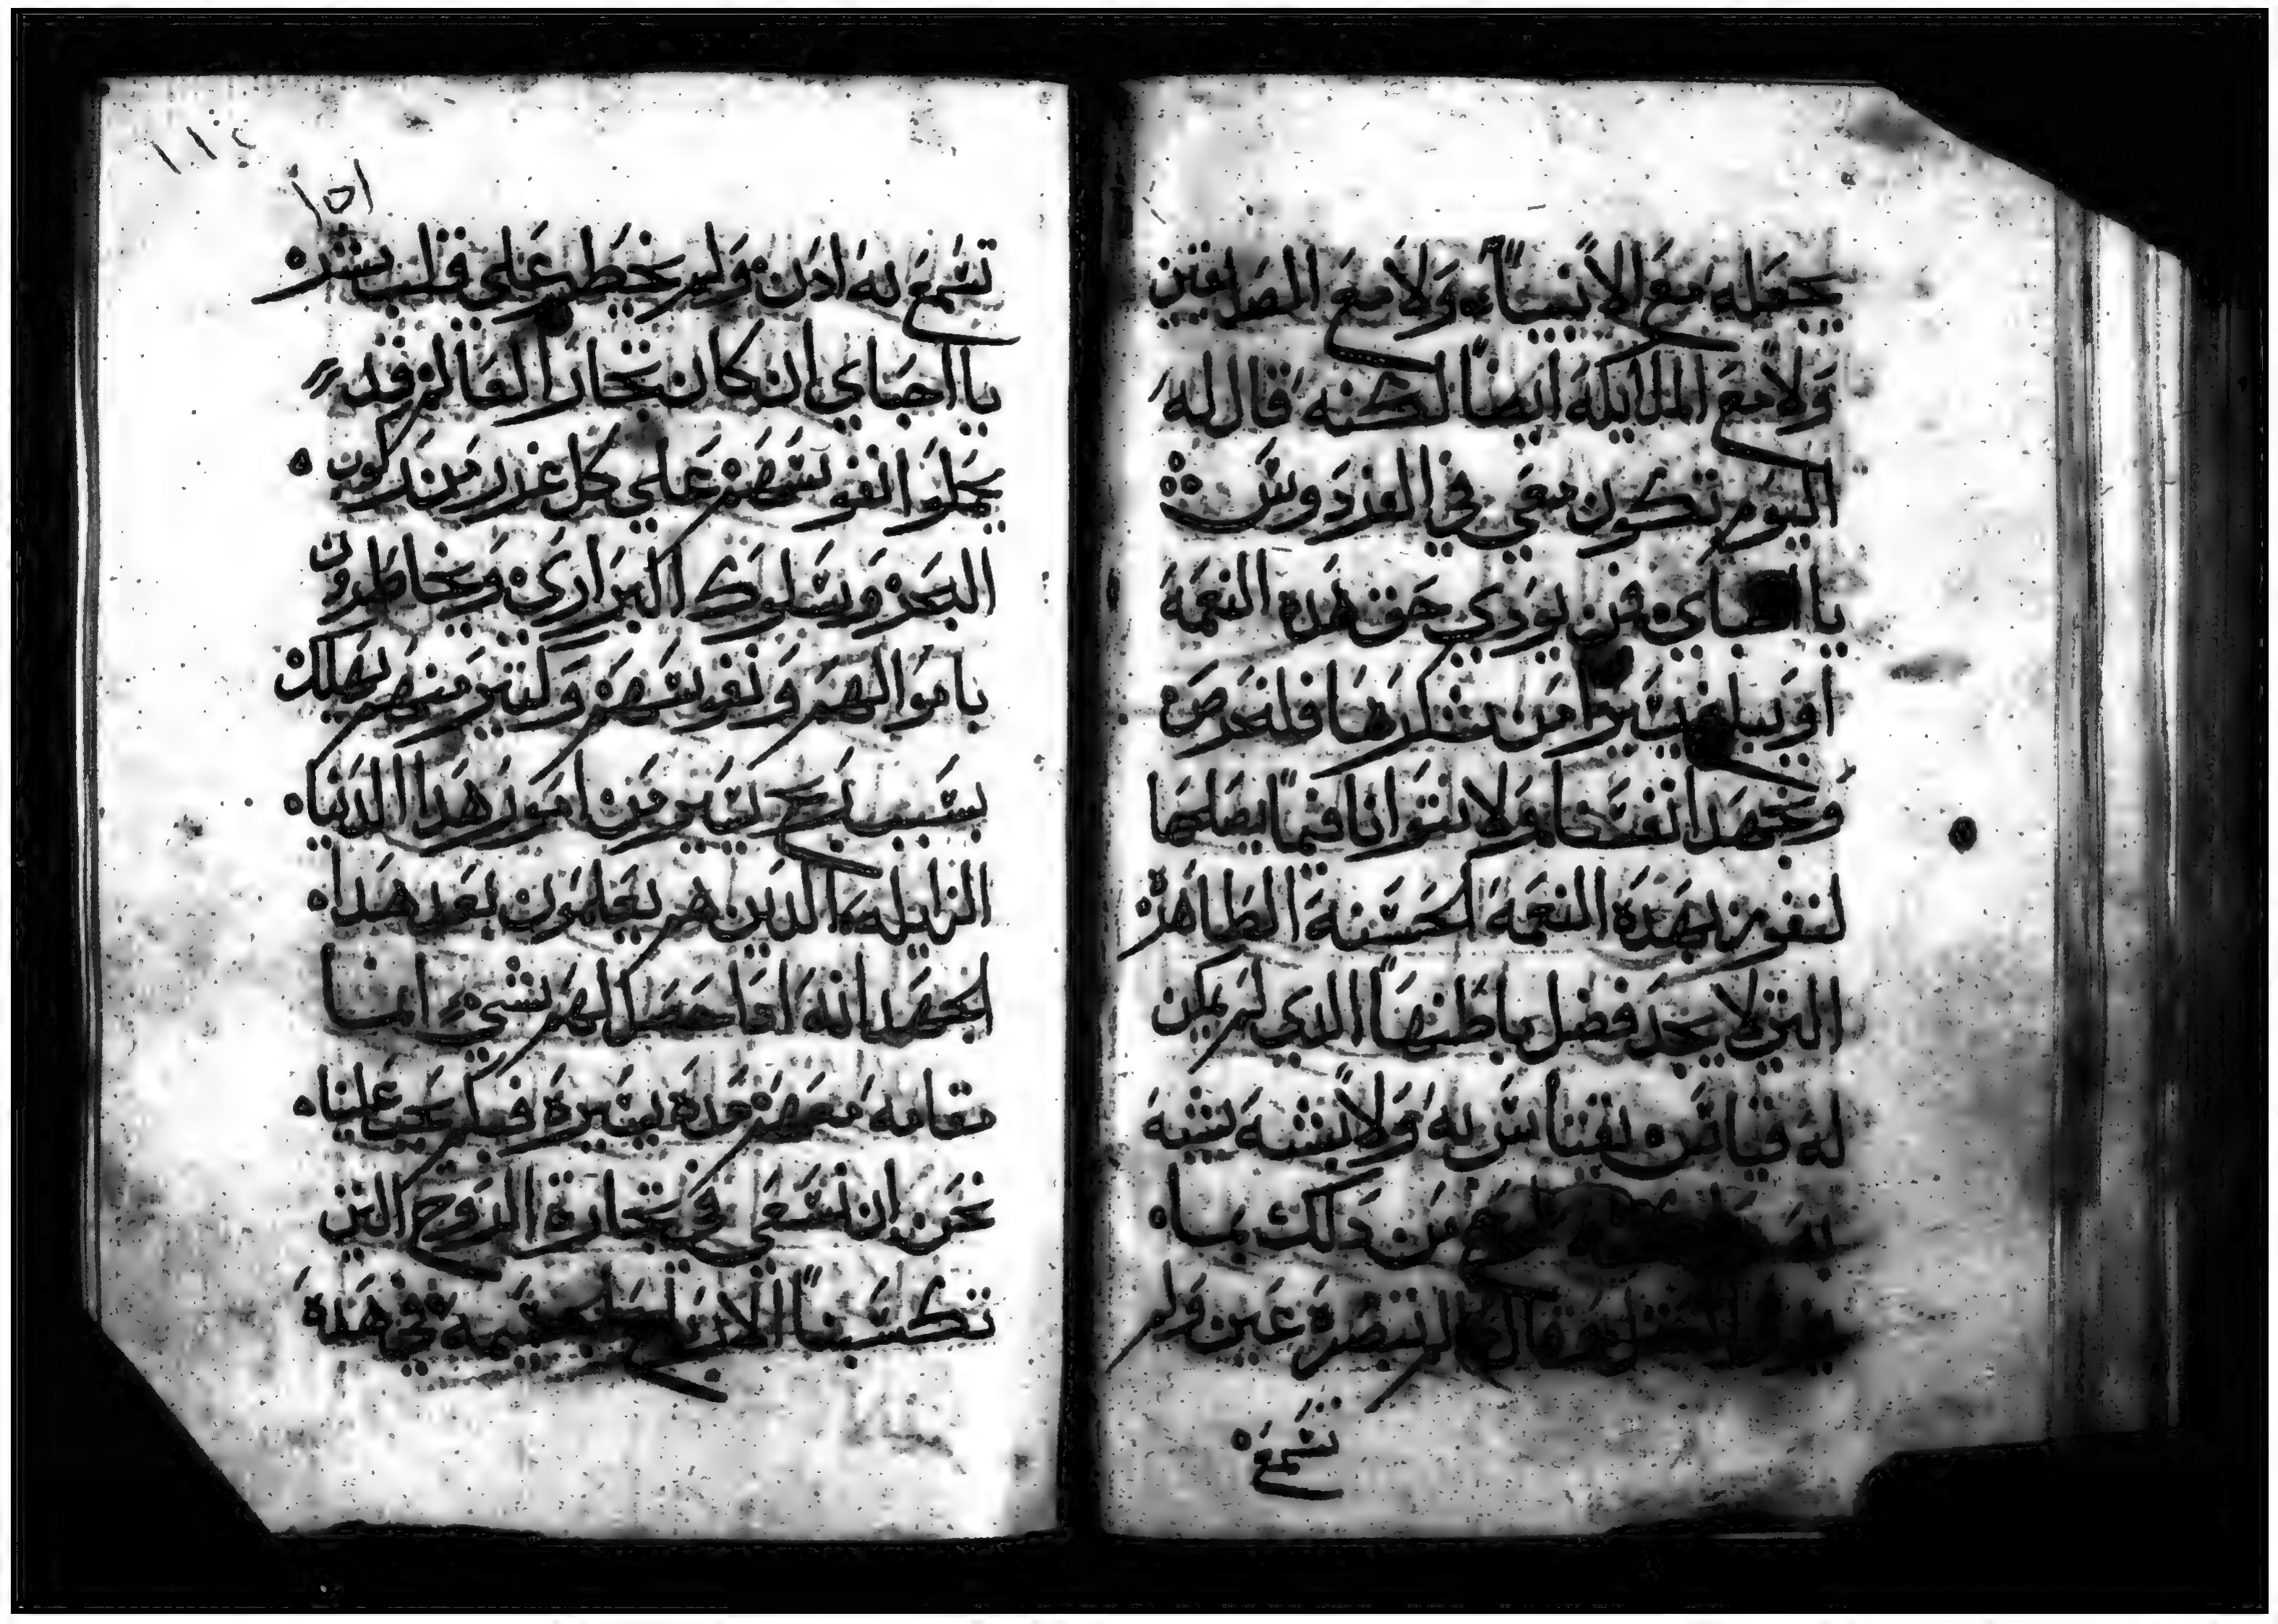 يجعله مع الانبياء ولا مع الصديقين
ولا مع الملايكه ايضًا لكنه قال له
اليوم تكون معي في الفردوس
يا احباي من يودي حق هذه النعمة
او يبلغ يسيرا من شكرها فلنحرص
ونجهد انفسنا ولا نتوانا فيما يصلحها
لنفوز بهذه النعمة الحسنة الطاهرة
التي لا يحد فضل باطنها الدي لم يكن
له قياس يقتاس به ولا شبه يشبه
به من دلك بما
وقال لم تبصره عين ولم
تسمع
١١٤
١٥١
تسمع به ادن ولم يخطر على قلب بشر
يا احباي ان كان تجار العالم قد
يحملوا انفوسهم على كل غرر من ركوب
البحر وسلوك البراري ويخاطرون
باموالهم ونفوسهم وكتير منهم يهلك
بسبب ربح يسير من امور هدا الدنيا
الزايله الدين هم يعلمون بعد هدا
الجهد انه ادا حصل لهم شيء انما
مقامه معهم مدة يسيرة فكم يجب علينا
نحن ان نسعى في تجارة الروح التي
تكسبنا الارباح الجسيمة في هده